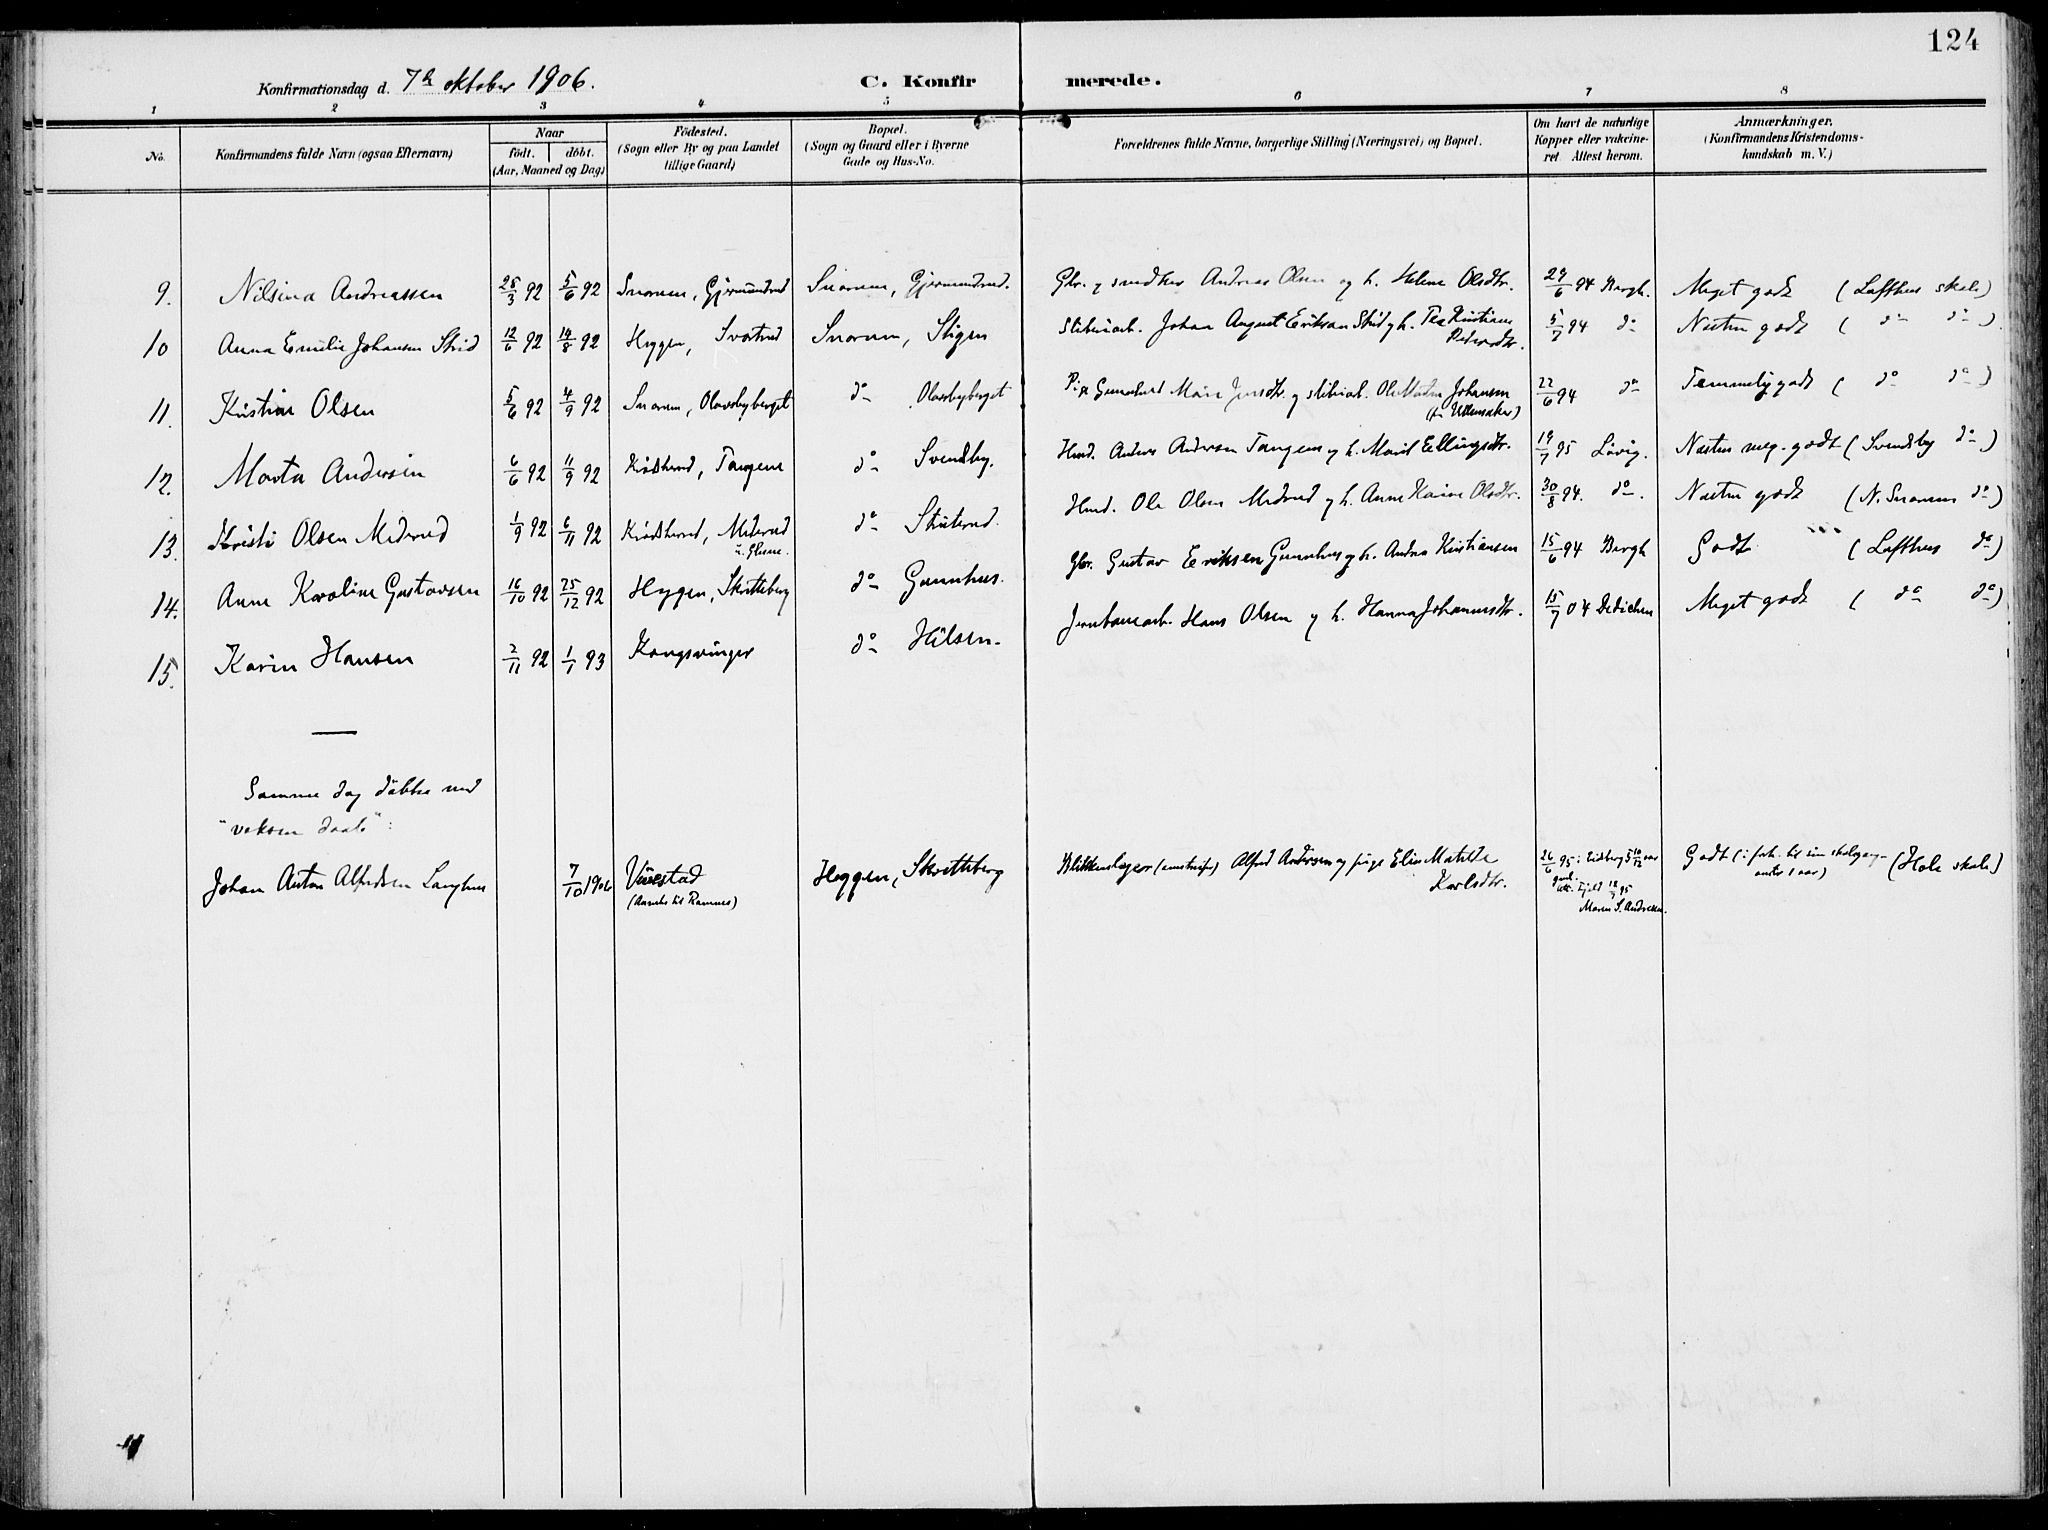 124
Konfirmationsdag d. 7de oktober 1906. C. Konfirmerede.
1 2 3 4 5 6 7 8
No. Konfirmandens fulde Navn (ogsaa Efternavn) Naar födt. döbt. (Aar, Maaned og Dag) Födested. (Sogn eller By og paa Landet tillige Gaard) Bopæl. (Sogn og Gaard eller i Byerne Gade og Hus-No. Forældrenes fulde Navne, borgerlige Stilling (Næringsvei) og Bopæl. Om havt de naturlige Kopper eller vakcineret Attest herom. Anmærkninger. (Konfirmandens Kristendomskundskab m. V.)
9. Nilsina Andreassen 28/3 92 5/6 92 Snarum, Gjermundrud Snarum, Gjermundrud. Gbr. og Andreas Olsen og h. Helene Olsdtr. 29/6 94 Bergh. Meget godt (Lofthus skole)
10 Anna Emilie Johansen Skid 12/6 92 14/8 92 Heggen, Svartrud Snarum, Stigen Sliberiarb. Johan August Erikson Skid og h. Thea Kristiane Petersdtr. 5/7 94 do Næsten godt ( do do )
11. Kristian Olsen 5/6 92 4/9 92 Snarum, Olavsbyberget do Olavsbyberget Pige Marie Jensdtr. og sliberiarb. Ole Martin Johansen 22/6 94 do Temmelig godt ( do do )
12. Marta Andersen 6/6 92 11/9 92 Krödsherred, Tangene do Svendby. Husm. Anders Andersen Tangene og h. Marit Ellingsdtr. 19/7 95 Lövig. Næsten meg. godt (Svendsby do )
13. Kristi Olsen Mederud 1/9 92 6/11 92 Krödsherred, Mederud u. Glesne. do Stuterud. Husm. Ole Olsen Mederud og h. Anne Karine Olsdtr. 30/8 94. do. Næsten godt (N. Snarum do)
14. Anne Karoline Gustavsen 16/10 92 25/12 92 Heggen, Skretteberg do Gunnhus. Gbr. Gustav Eriksen Gunnhus og h. Andrea Kristiansen 15/6 94 Bergh Godt (Lofthus do)
15. Karin Hansen 2/11 92 1/1 93 Kongsvinger do Hilsen. Jernbanearb. Hans Olsen og h. Hanna Johannesdtr. 15/7 04 Dedichen Meget godt ( do do)
Samme dag döbtes med
"voksen daab":
Johan Anton Alfredsen Langhus 7/10 1906 Vivestad (Anneks til Ramnes) Heggen, Skretteberg Blikkenslager Alfred Andersen og pige Elise Matilde Karlsdtr. 26/6 95 Maren S. Andresen. Godt (Hole skole)